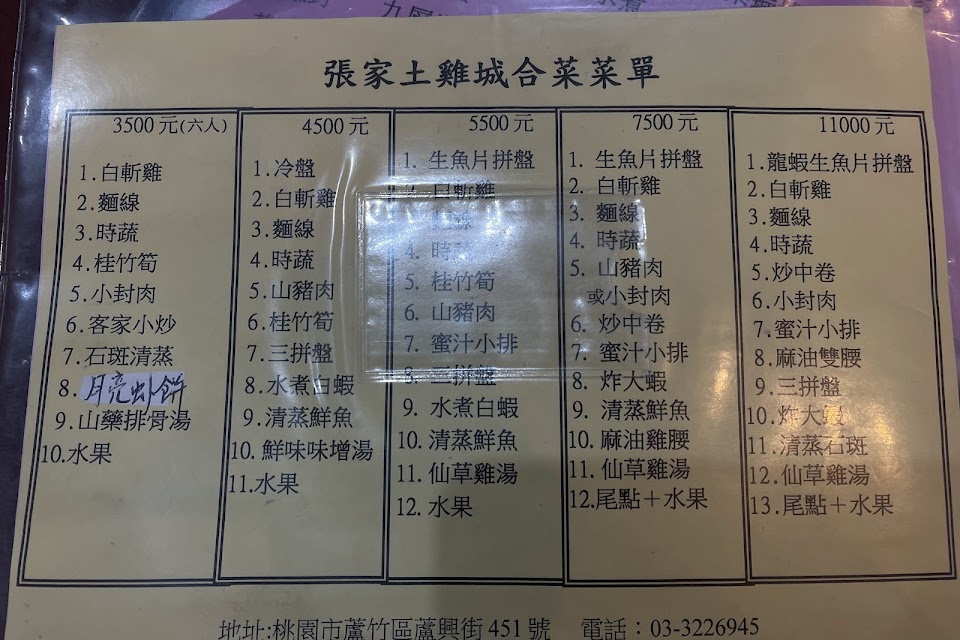 張家土雞城合菜菜單
3500元(六人)
1.白斬雞
2.麵線
3.時蔬
4.桂竹筍
5.小封肉
6.客家小炒
7.石斑清蒸
8.月亮虾餅
9.山藥排骨湯
10.水果
4500元
1.冷盤
2.白斬雞
3.麵線
4.時蔬
5.山豬肉
6.桂竹筍
7.三拼盤
8.水煮白蝦
9.清蒸鮮魚
10.鮮味味增湯
11.水果
5500元
1. 生魚片拼盤
2. 白斬雞
3. 麵線
4. 時蔬
5. 桂竹筍
6. 山豬肉
7. 蜜汁小排
8. 三拼盤
9. 水煮白蝦
10. 清蒸鮮魚
11. 仙草雞湯
12. 水果
7500元
1. 生魚片拼盤
2. 白斬雞
3. 麵線
4. 時蔬
5. 山豬肉
或小封肉
6. 炒中卷
7. 蜜汁小排
8. 炸大蝦
9. 清蒸鮮魚
10. 麻油雞腰
11. 仙草雞湯
12.尾點＋水果
11000元
1.龍蝦生魚片拼盤
2.白斬雞
3.麵線
4.時蔬
5.炒中卷
6.小封肉
7.蜜汁小排
8.麻油雙腰
9.三拼盤
10.炸大蝦
11.清蒸石斑
12.仙草雞湯
13.尾點＋水果
地址:桃園市蘆竹區蘆興街451號 電話：03-3226945